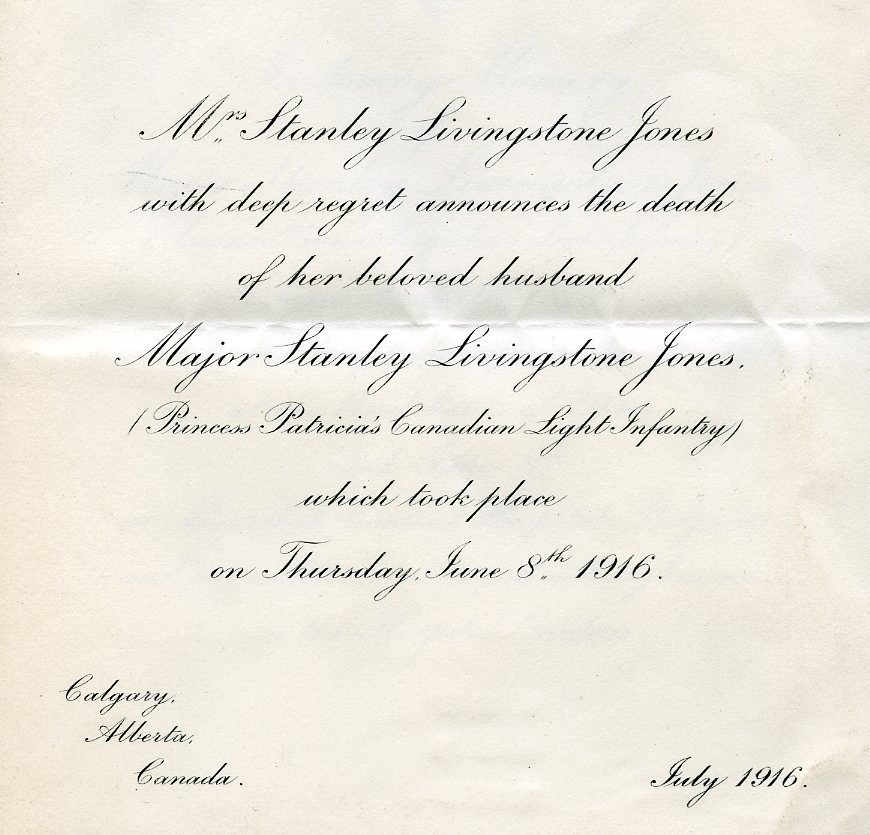 Mrs Stanley Livingstone Jones
with deep regret announces the death
of her beloved husband
Major Stanley Livingstone Jones.
(Princess Patricia's Canadian Light Infantry)
which took place
on Thursday, June 8th 1916.
Calgary,
Alberta,
Canada.
July 1916.